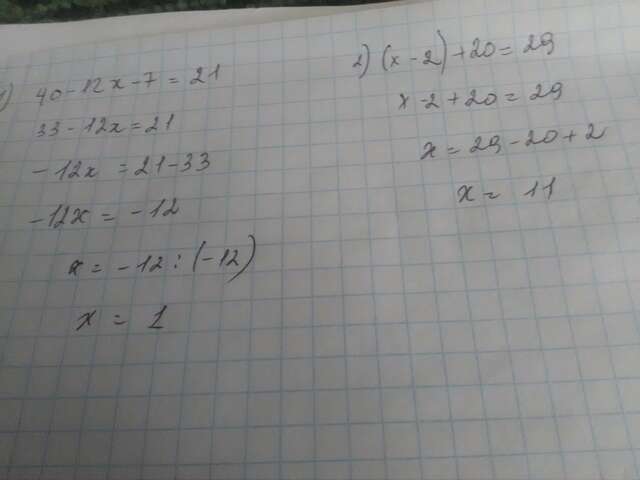 1) 40 - 12x - 7 = 21
33 - 12x = 21
-12x = 21 - 33
-12x = -12
x = -12 : (-12)
x = 1
2) (x - 2) + 20 = 29
x - 2 + 20 = 29
x = 29 - 20 + 2
x = 11